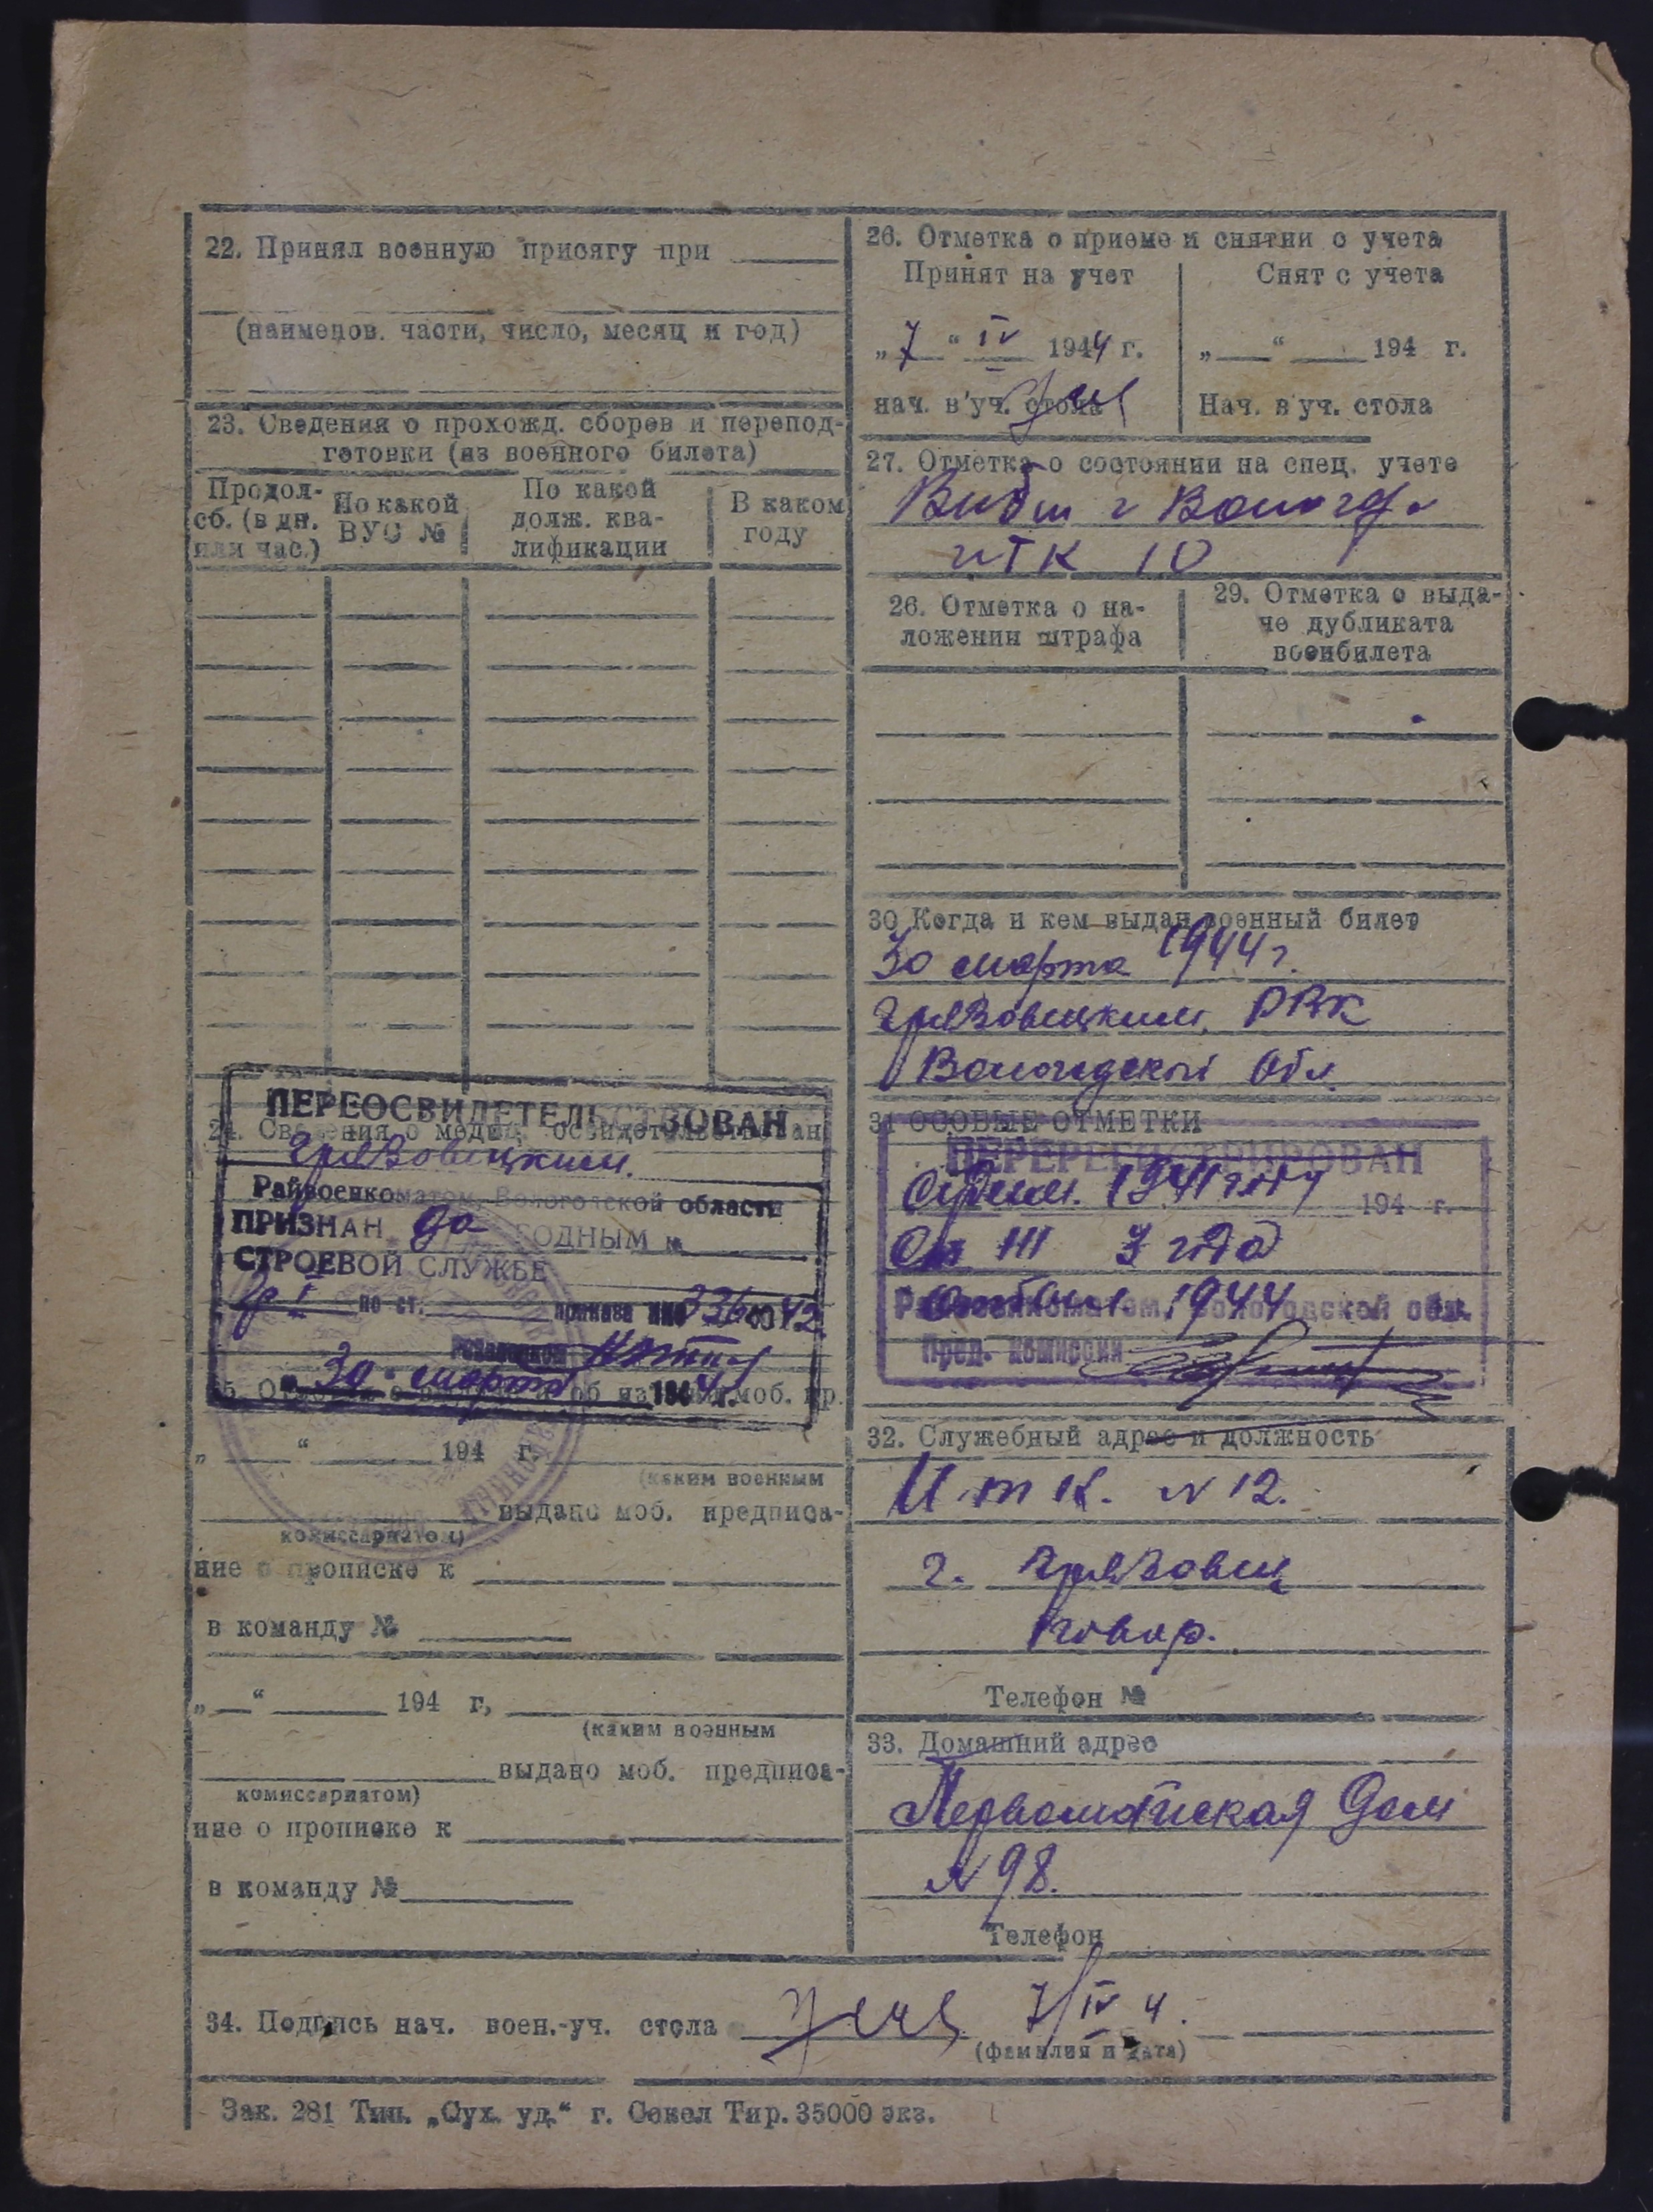 22. Принял военную присягу при
(наименов. части, число, месяц и год)
23. Сведения о прохожд. сборов и перепод-
готовки (из военного билета)
Продол-
сб. (в дн.
или час.)
По какой
ВУС №
По какой
долж. ква-
лификации
В каком
году
ПЕРЕОСВИДЕТЕЛЬСТВОВАН
24. Сведения о медиц.
Грязовецким
Райвоенкоматом, Вологодской области
ПРИЗНАН до ГОДНЫМ к
СТРОЕВОЙ СЛУЖБЕ
гр I по ст. приказа НКО 336 1942
30 марта 1944 г.
„ “ 194 г.
(каким военным
выдано моб. предписа-
комиссариатом)
ние о прописке к
в команду №
„ “ 194 г,
(каким военным
выдано моб. предписа-
комиссариатом)
ние о прописке к
в команду №
26. Отметка о приеме и снятии с учета
Принят на учет
„7“ IV 1944 г.
нач. в'уч. стола
Снят с учета
„ “ 194 г.
Нач. в'уч. стола
27. Отметка о состоянии на спец. учете
Выбыл г Вологда
итк 10
26. Отметка о на-
ложении штрафа
29. Отметка о выда-
че дубликата
военбилета
30 Когда и кем выдан военный билет
30 марта 1944 г.
Грязовецким РВК
Вологодской Обл.
31 ОСОБЫЕ ОТМЕТКИ
ПЕРЕРЕГИСТРИРОВАН
1941 году 194 г.
III 3 года
1944
Райвоенкоматом, Вологодской обл.
Пред. комиссии
32. Служебный адрес и должность
И.т К. N 12.
г. Грязовец
повар.
Телефон №
33. Домашний адрес
Первомайская Дом
N 98.
Телефон
34. Подпись нач. воен.-уч. стола 7/IV 4.
(фамилия и дата)
Зак. 281 Тип. „Сух. уд.“ г. Сокол Тир. 35000 экз.